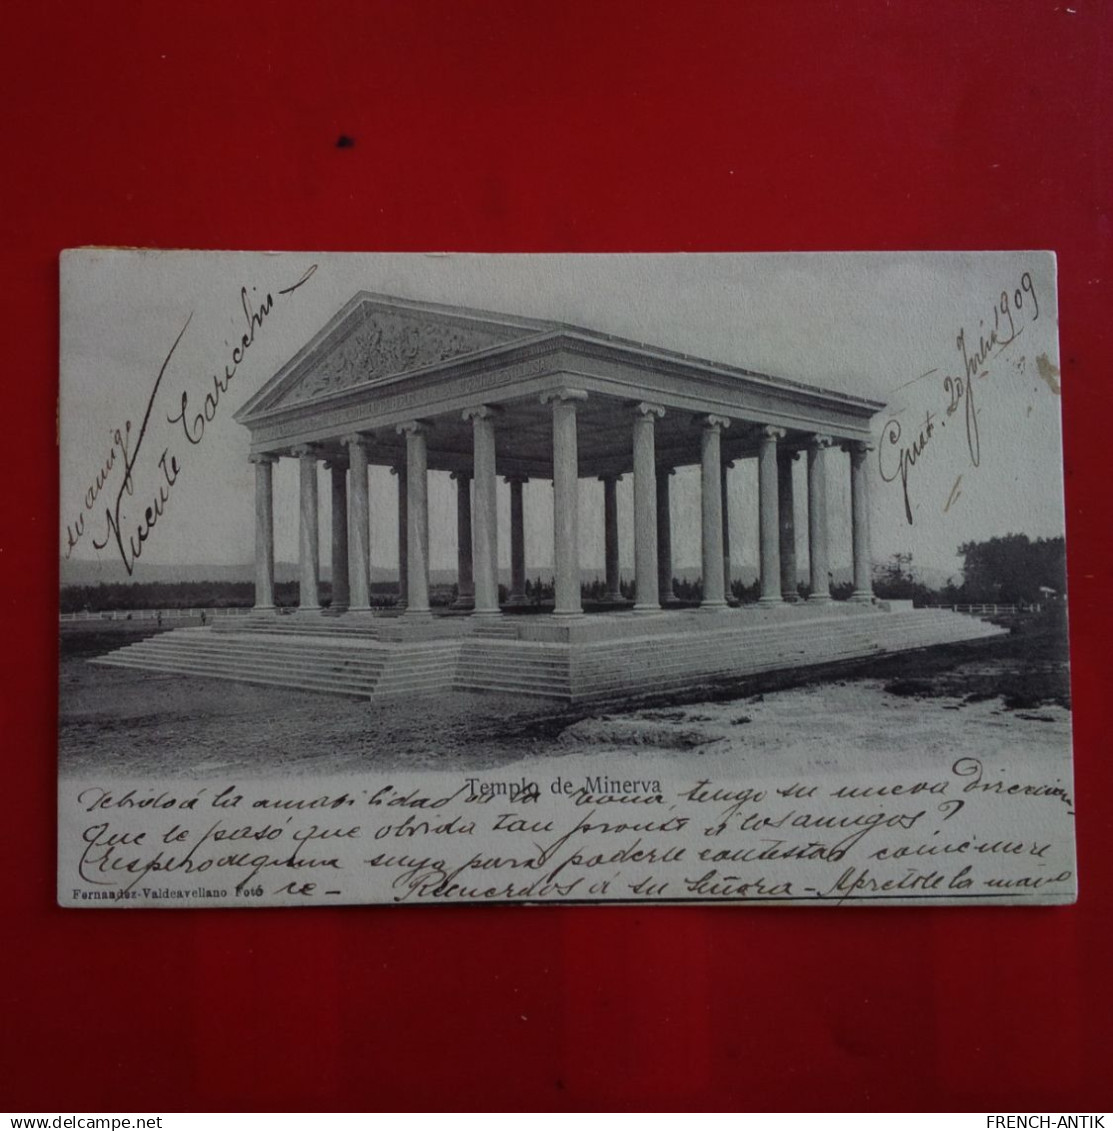 su amigo
Vicente Caricchio
Guat. 20 Julio 1909
Templo de Minerva
Debido á la amabilidad de la tengo su nueva Direccion
Que le pasó que olvida tan pronto á los amigos?
Espero alguna suya para poderle contestar como mere
ce - Recuerdos á su Señora - Apretole la mano
Fernandez-Valdeavellano Foto
FRENCH-ANTIK